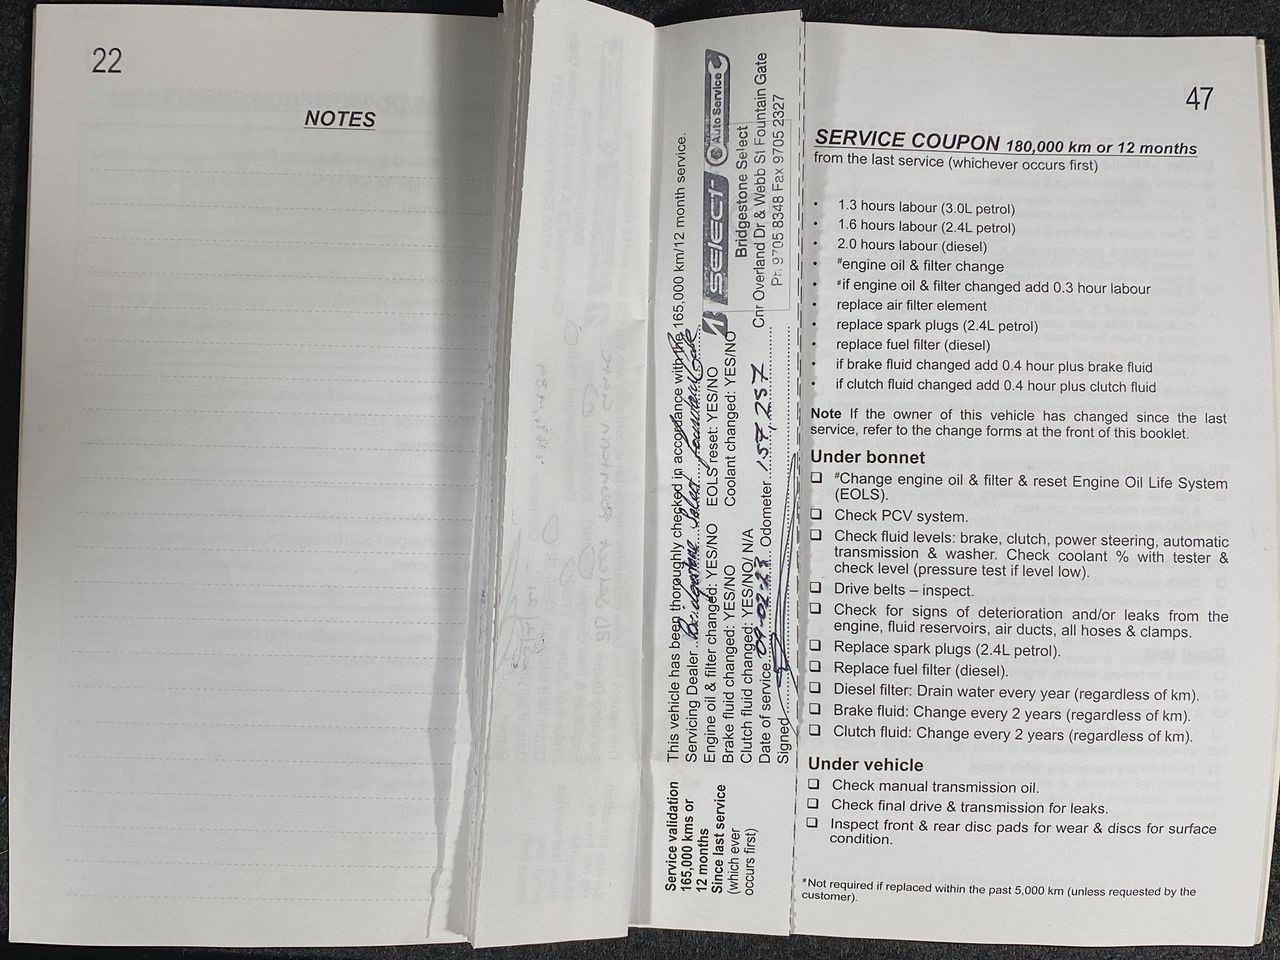 22
NOTES
Service validation
165,000 kms or
12 months
Since last service
(which ever
occurs first)
This vehicle has been thoroughly checked in accordance with the 165,000 km/12 month service.
Servicing Dealer Bridgestone Select Fountain Gate
Engine oil & filter changed: YES/NO EOLS reset: YES/NO
Brake fluid changed: YES/NO Coolant changed: YES/NO
Clutch fluid changed: YES/NO/ N/A
Date of service 09-02-23 Odometer 157,257
Signed
SELECT Auto Service
Bridgestone Select
Cnr Overland Dr & Webb St Fountain Gate
Ph 9705 8348 Fax 9705 2327
47
SERVICE COUPON 180,000 km or 12 months
from the last service (whichever occurs first)
• 1.3 hours labour (3.0L petrol)
• 1.6 hours labour (2.4L petrol)
• 2.0 hours labour (diesel)
• #engine oil & filter change
• #if engine oil & filter changed add 0.3 hour labour
• replace air filter element
• replace spark plugs (2.4L petrol)
• replace fuel filter (diesel)
• if brake fluid changed add 0.4 hour plus brake fluid
• if clutch fluid changed add 0.4 hour plus clutch fluid
Note If the owner of this vehicle has changed since the last
service, refer to the change forms at the front of this booklet.
Under bonnet
❑ #Change engine oil & filter & reset Engine Oil Life System
(EOLS).
❑ Check PCV system.
❑ Check fluid levels: brake, clutch, power steering, automatic
transmission & washer. Check coolant % with tester &
check level (pressure test if level low).
❑ Drive belts – inspect.
❑ Check for signs of deterioration and/or leaks from the
engine, fluid reservoirs, air ducts, all hoses & clamps.
❑ Replace spark plugs (2.4L petrol).
❑ Replace fuel filter (diesel).
❑ Diesel filter: Drain water every year (regardless of km).
❑ Brake fluid: Change every 2 years (regardless of km).
❑ Clutch fluid: Change every 2 years (regardless of km).
Under vehicle
❑ Check manual transmission oil.
❑ Check final drive & transmission for leaks.
❑ Inspect front & rear disc pads for wear & discs for surface
condition.
#Not required if replaced within the past 5,000 km (unless requested by the
customer).